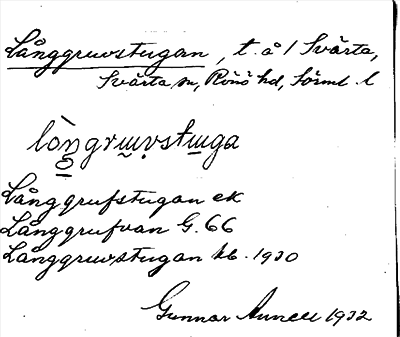 Långgruvstugan, t. å / Svärta,
Svärta sn, Rönö hd, Sörml. l
lòn̥gruvstuga
Långgrufstugan ek
Långgrufvan G. 66
Långgruvstugan kb. 1930
Gunnar 1932